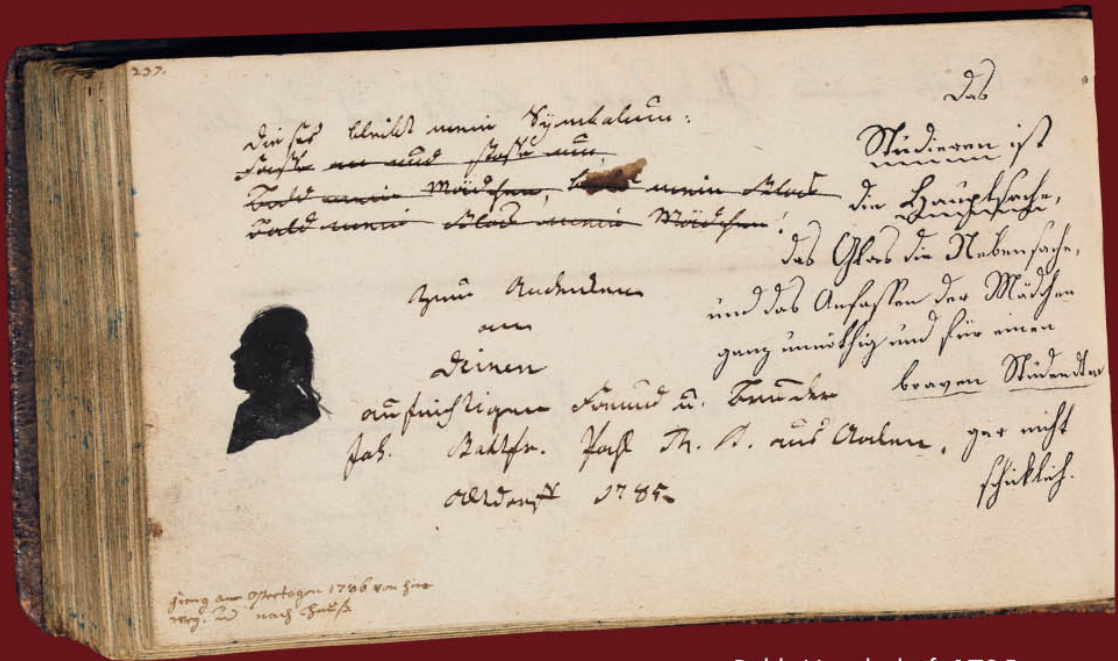 237.
dieses bleibt mein Symbolum:
stoße nun
Bald mein Mädchen, bald mein Glas
Bald mein Glas mein Mädchen!
zum Andenken
an
deinen
aufrichtigen Freund u. Bruder
Joh. Pahl Th. aus Aalen.
Altdorf 1785
Das
Studieren ist
die Hauptsache,
das Glas die Nebensache,
und das Anfassen der Mädchen
ganz unnöthig und für einen
braven Studenten
gar nicht
schicklich.
gieng am Ostertagen 1786 von hier
weg. und nach Hauß